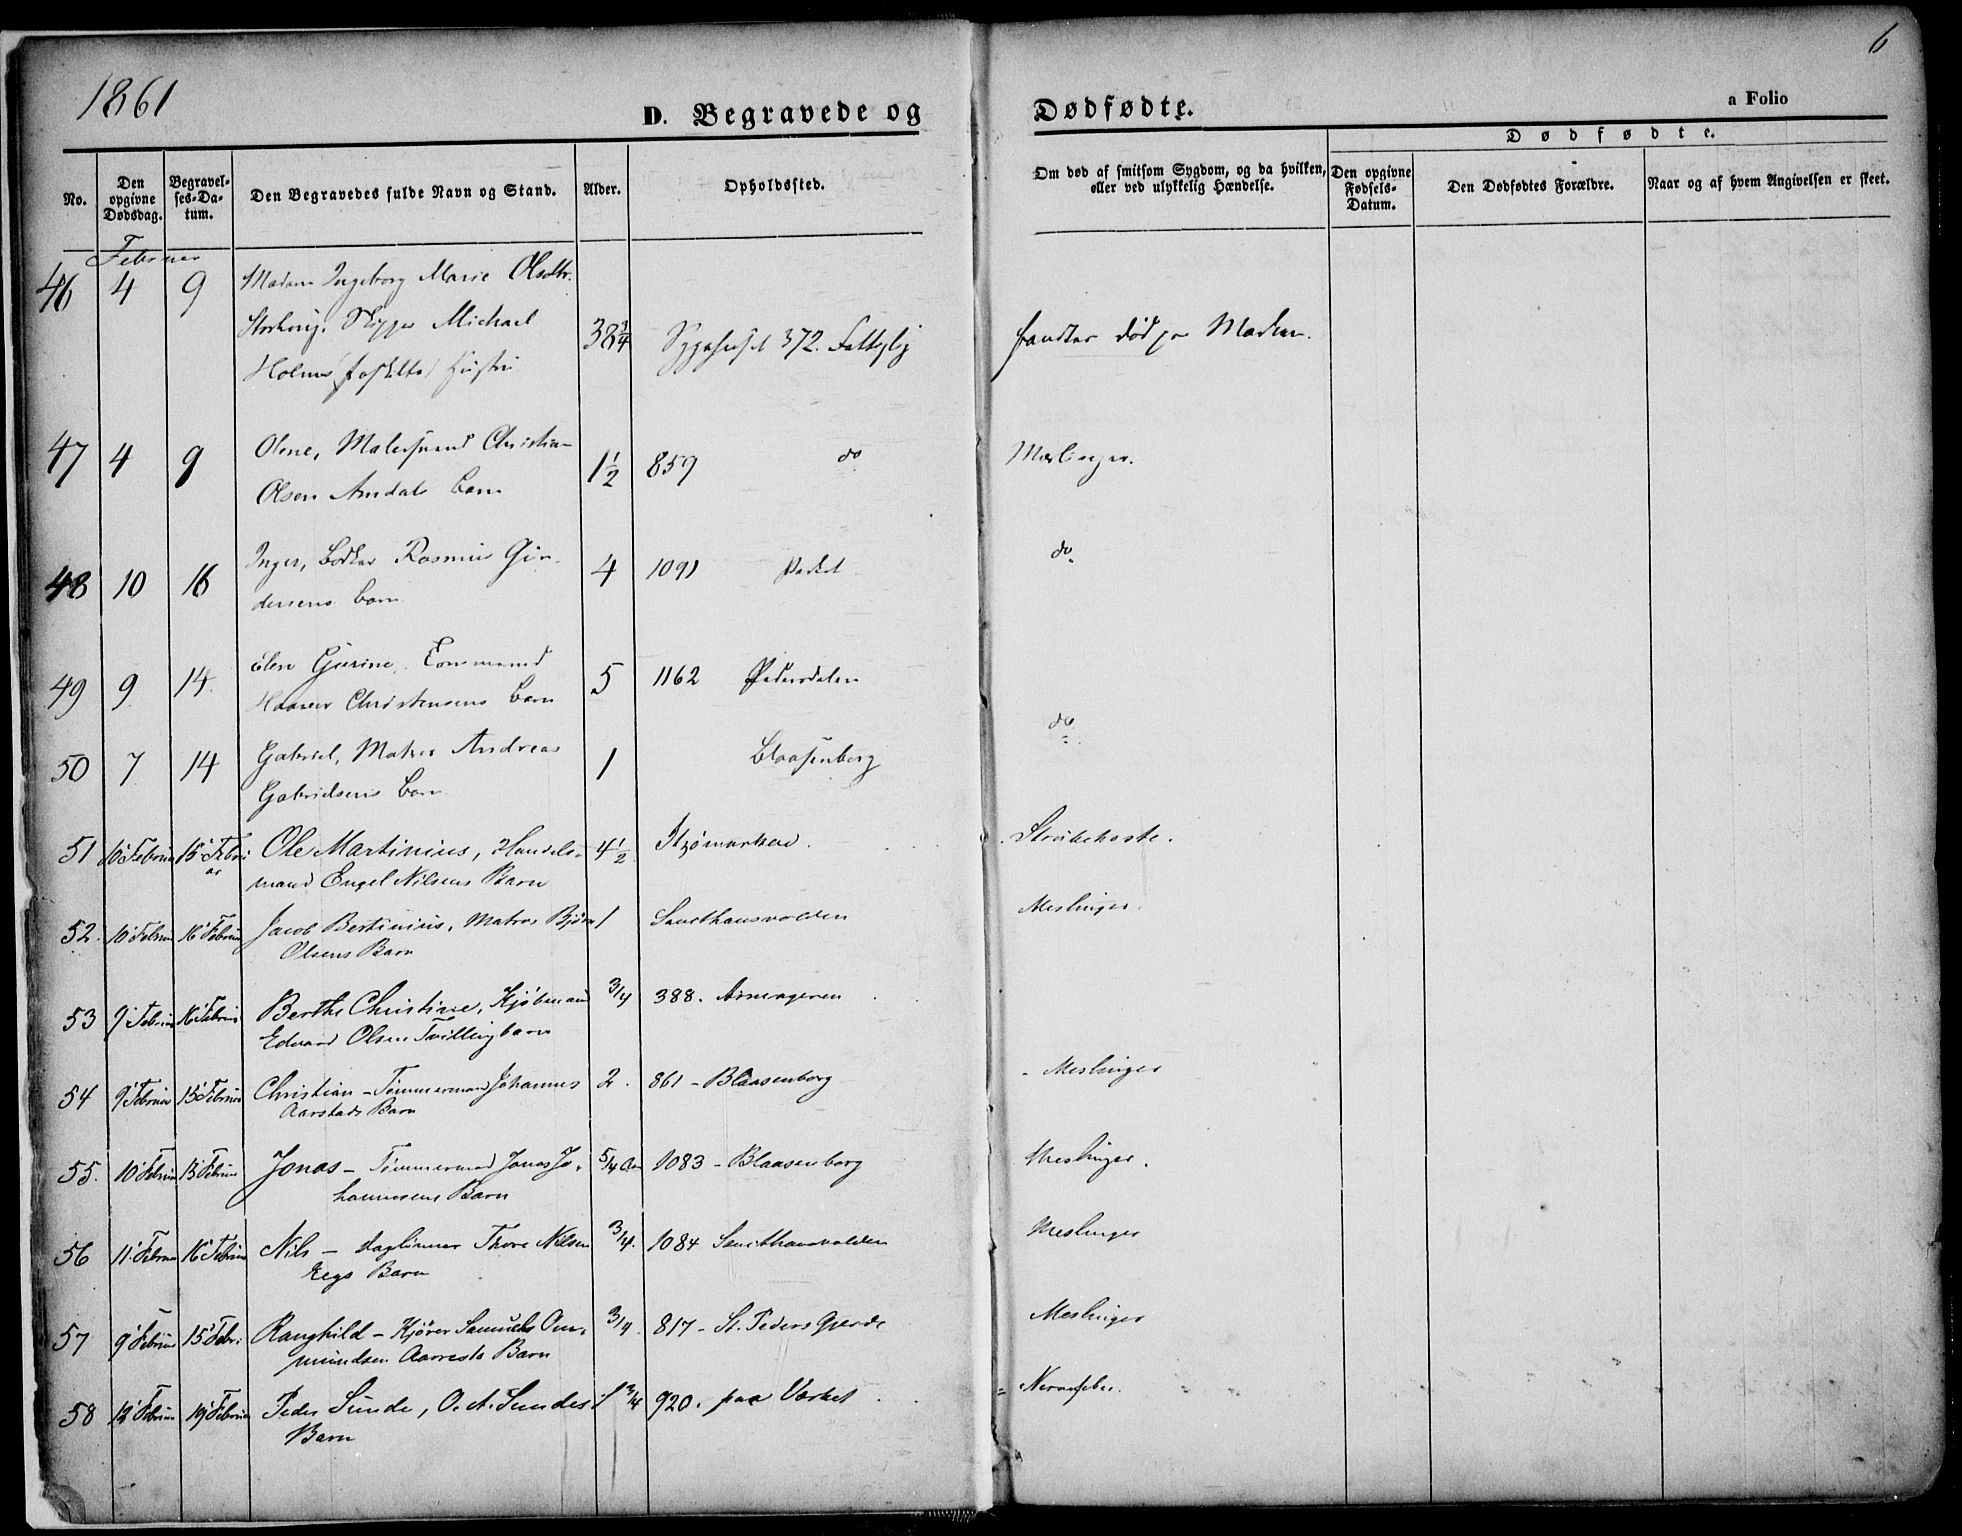 1861
6
D. Begravede og Dødfødte.
a Folio
No.
Den opgivne Dødsdag.
Begravelses-Datum.
Den Begravedes fulde Navn og Stand.
Alder.
Opholdssted.
Om død af smitsom Sygdom, og da hvilken, eller ved ulykkelig Hændelse.
Dødfødte.
Den opgivne Fødsels-Datum.
Den Dødfødtes Forældre.
Naar og af hvem Angivelsen er skeet.
Februar
46 4 9 Madam Ingeborg Marie Olsdtr.
Skipper Michael 38 3/4 Sygehuset 372. død Maden.
Holms Hustru
47 4 9 Olene, Christian 1 1/2 859 do Meslinger.
Olsen Barn
48 10 16 Inger, Bødker Rasmus 4 1091 do
Barn
49 9 14. Elen Gurine, 5 1162 Pedersdalen
Christensens Barn
do
50 7 14 Gabriel, Matros Andreas 1 Blaasenborg
Gabrielsens Barn
51 10 Februar 15 Februar Ole Martinius, Handels- 4 1/2 Strubehoste.
mand Engel Nilsens Barn
52. 10 Februar 16 Februar Jacob Bertinius, Matros Bjørn 1 Sancthansvolden Meslinger.
Olsens Barn
53 9 Februar 16 Februar Berthe Christine, Kjøbmand 3/4 388.
Edvard Olsens Tvillingbarn
54 9 Februar 15 Februar Christian - Tømmermand Johannes 2. 861 - Blaasenborg - Meslinger
Aarstads Barn
55. 10 Februar 15 Februar Jonas - Tømmermand Jonas Jo- 5/4 Aar 1083 - Blaasenborg Meslinger.
hannesens Barn
56 11 Februar 16 Februar Nils - Daglønner Thore Nilsen 3/4. 1084 Sancthansvolden Meslinger
Eegs Barn
57 9 Februar 15 Febr. Ranghild - Kjører Samuel Om- 3/4. 817 - St. Peders Gjerde Meslinger
mundsen Aarrests Barn
58 12 Februar 19 Februar Peder Sunde, O. A. Sundes 1 3/4 920. paa Værket. Nervefeber.
Barn